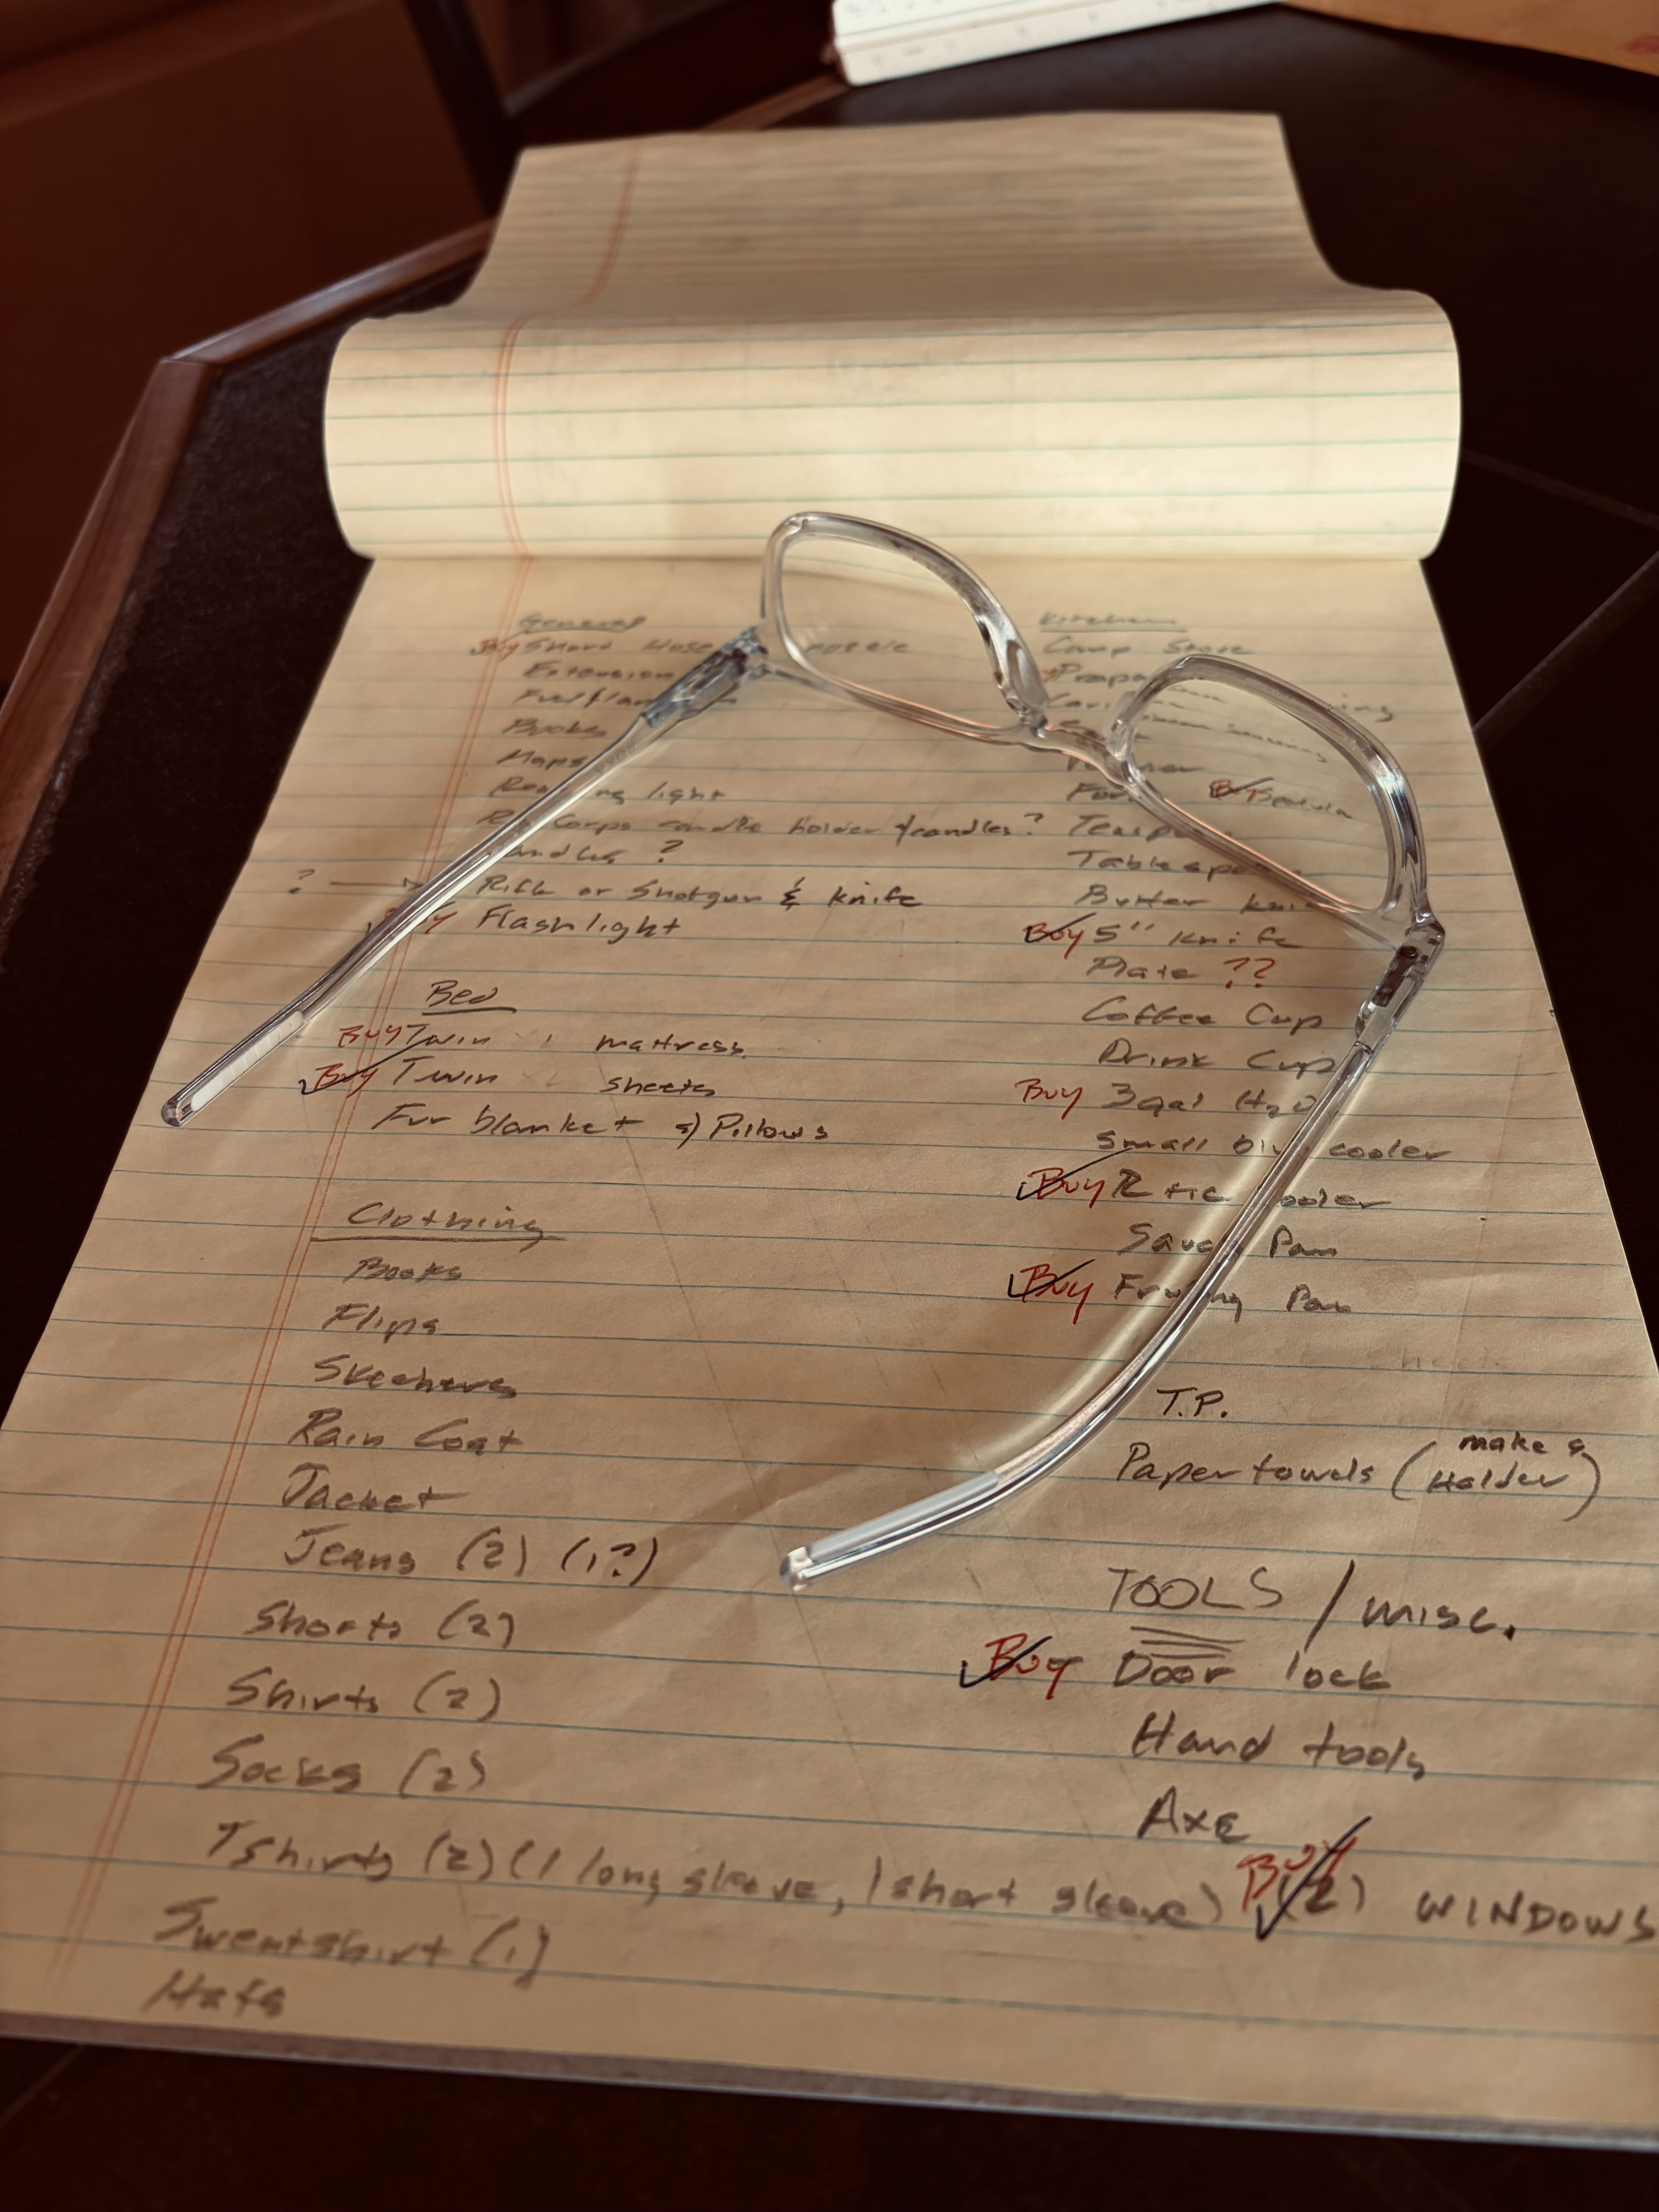 General
Buy Short Hose nozzle
Extension
Books
Maps
light
Corps candle holder / candles ?
?
? Rifle or Shotgun & knife
Buy Flashlight
Bed
Buy Twin mattress
Buy Twin sheets
Fur blanket Pillows
Clothing
Boots
Flips
Skechers
Rain Coat
Jacket
Jeans (2) (1?)
Shorts (2)
Shirts (2)
Socks (2)
Tshirts (2) (1 long sleeve, 1 short sleeve)
Sweatshirt (1)
Hats
Kitchen
Camp Stove
Butter
Buy 5" knife
Plate ??
Coffee Cup
Drink Cup
Buy 3gal H2O
small cooler
Buy
Pan
Buy Pan
T.P.
Paper towels (make a Holder)
TOOLS / misc.
Buy Door lock
Hand tools
Axe
Buy (2) WINDOWS